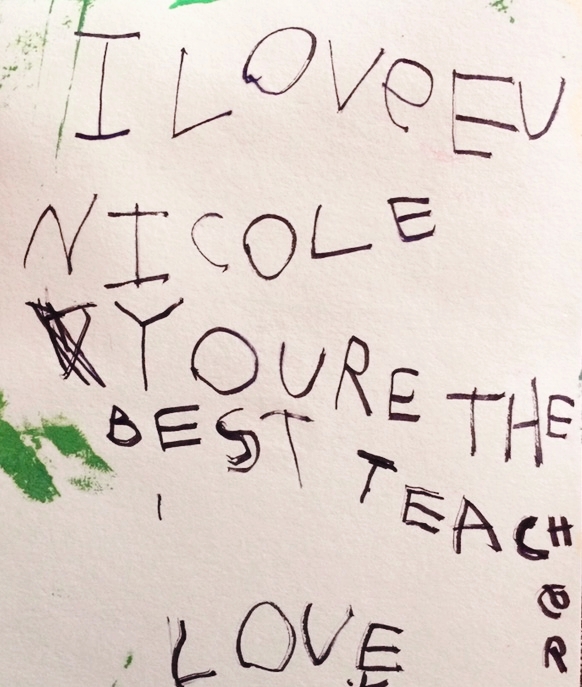 I LOVE EU
NICOLE
YOURE THE
BEST
TEACHER
LOVE